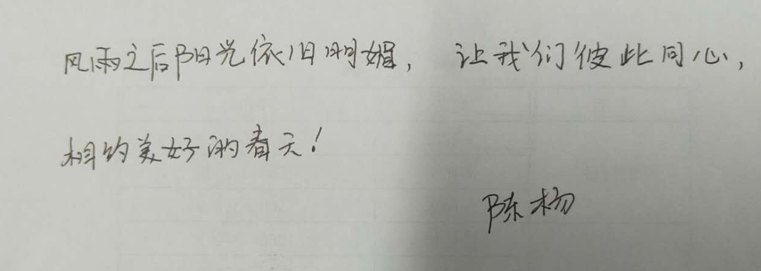 风雨之后阳光依旧明媚，让我们彼此同心，
相约美好的春天！
陈杨